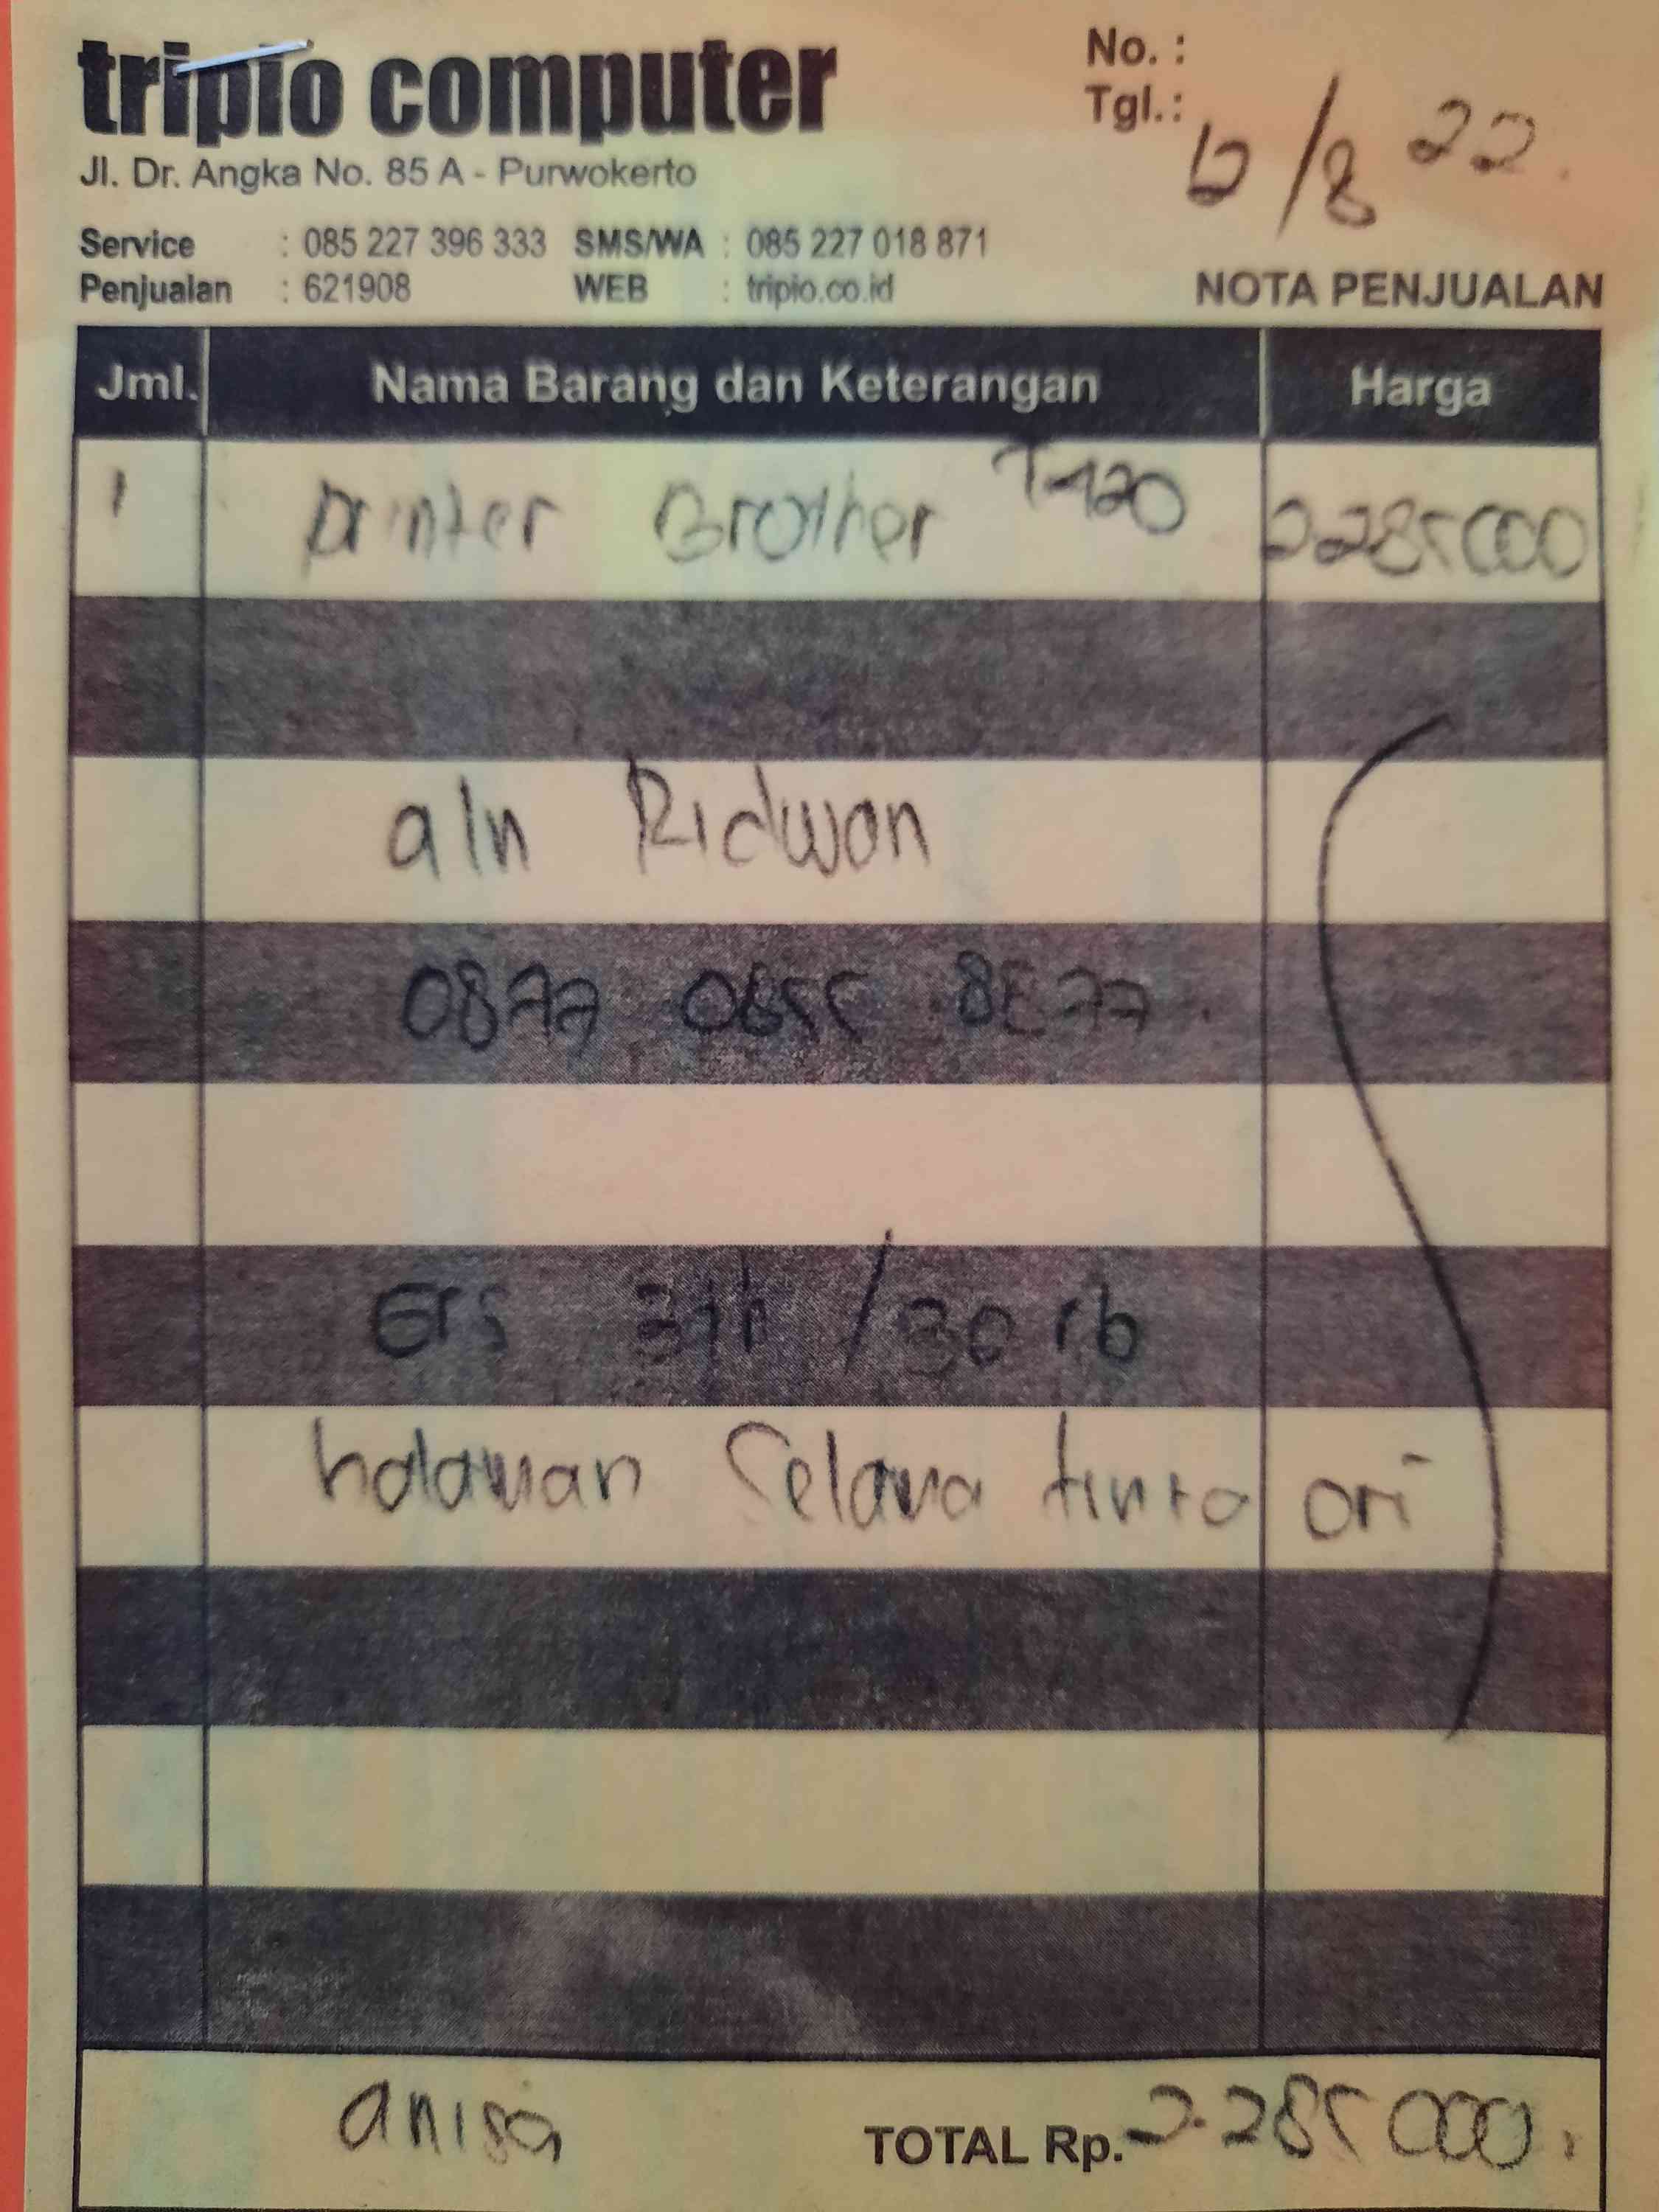 tripio computer
Jl. Dr. Angka No. 85 A - Purwokerto
Service : 085 227 396 333 SMS/WA : 085 227 018 871
Penjualan : 621908 WEB : tripio.co.id
No. :
Tgl. : 6/8 22.
NOTA PENJUALAN
Jml. Nama Barang dan Keterangan Harga
1 printer Brother T420 2285000
a/n Ridwan
0877 0655 8577.
Grs 3th / 30 rb
halaman Selama tinta ori
anisa TOTAL Rp. 2.285000.